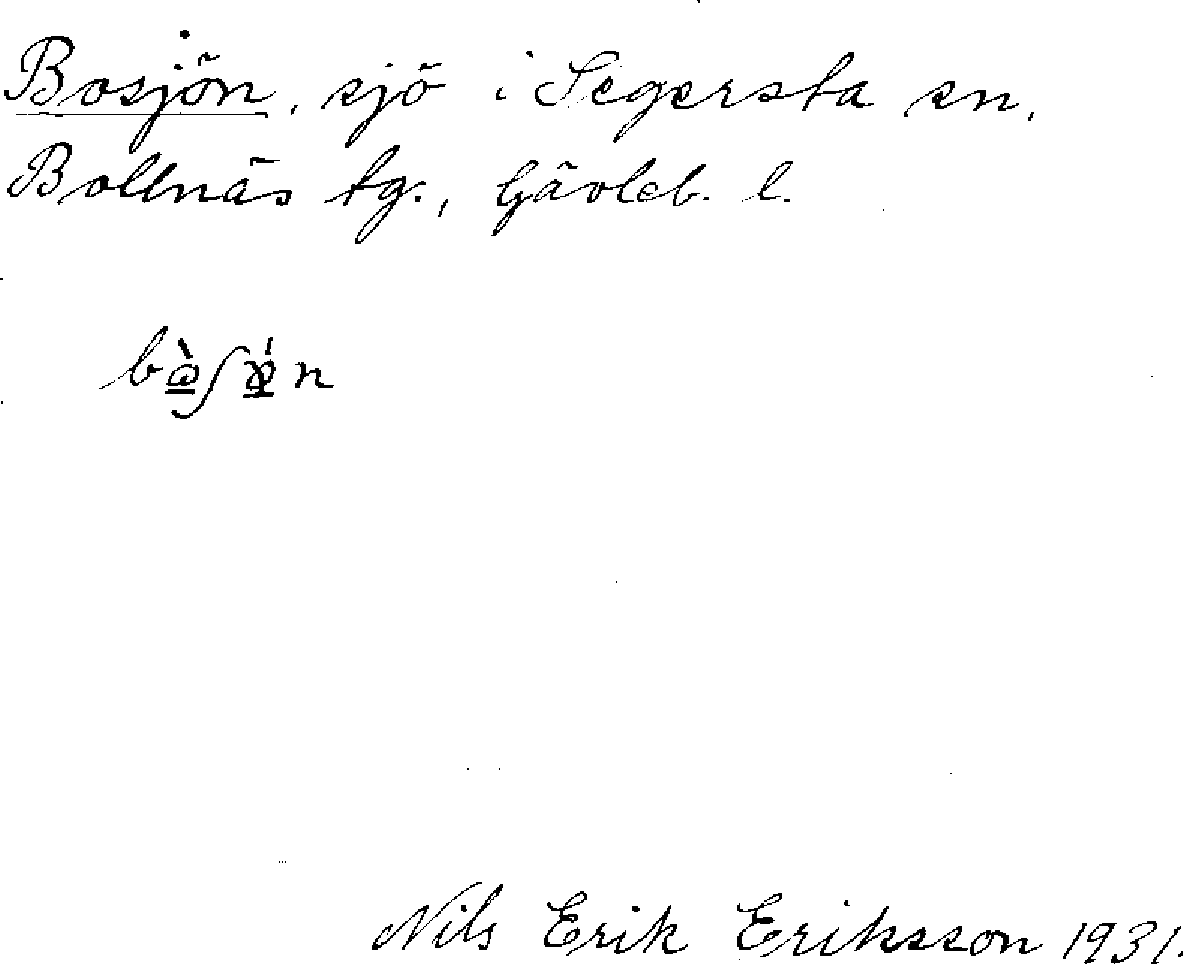 Bosjön, sjö i Segersta sn,
Bollnäs tg., Gävleb. l.
Nils Erik Eriksson 1931.